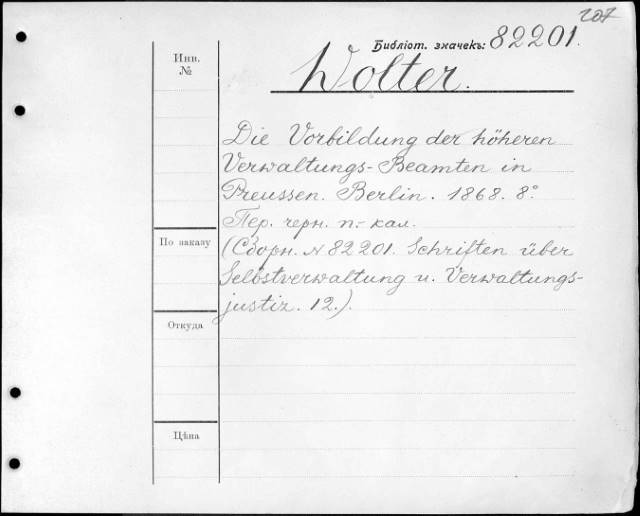 207
Библіот. значекъ: 82201.
Инв.
№
Wolter.
Die Vorbildung der höheren
Verwaltungs-Beamten in
Preussen. Berlin. 1868. 8°
Пер. черн. п.-кал.
По заказу
(Сборн. № 82201. Schriften über
Selbstverwaltung u. Verwaltungs-
justiz. 12.)
Откуда
Цѣна